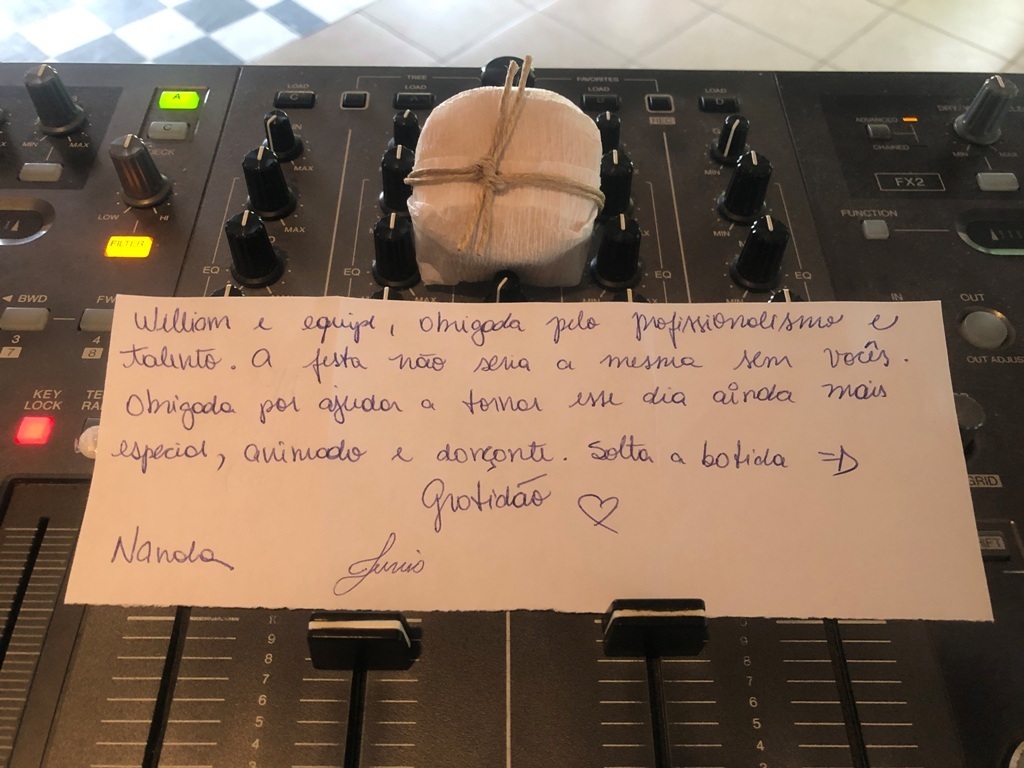 TREE
FAVORITES
LOAD
C
LOAD
A
LOAD
LOAD
D
A
C
DECK
MIN
MAX
LOW
HI
FILTER
MAX
MIN
EQ
EQ
EQ
EQ
MAX
ADVANCED
CHAINED
MIN
FX2
FUNCTION
BWD
3
7
4
8
KEY
LOCK
IN
OUT
OUT ADJUS
William e equipe, obrigada pelo profissionalismo e
talento. A festa não seria a mesma sem vocês.
Obrigada por ajudar a tornar esse dia ainda mais
especial, animado e dançante. Solta a batida =D
Gratidão ♡
Nanda
Junio
10
9
8
7
6
5
4
9
8
7
6
5